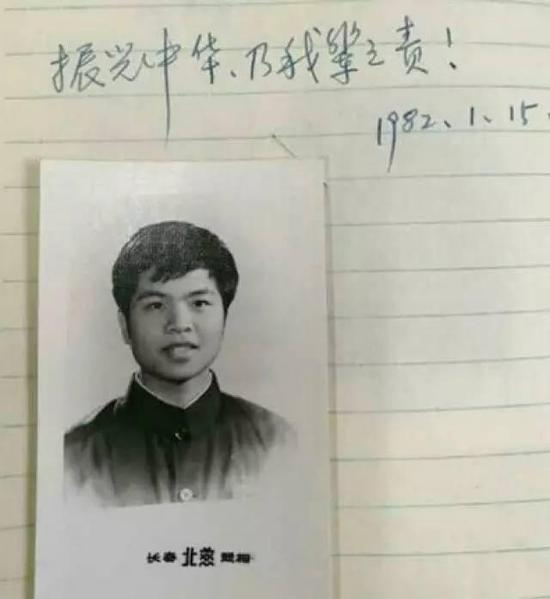 振兴中华、乃我辈之责！
1982.1.15.
长春 北 照相